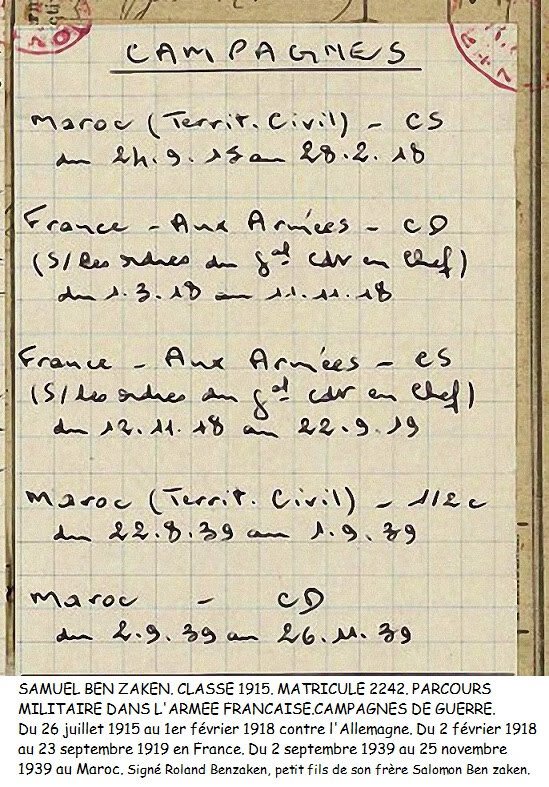 CAMPAGNES
Maroc (Territ. Civil) - CS
du 24.9.15 au 28.2.18
France - Aux Armées - CD
(S/les ordres du gal cdt en Chef)
du 1.3.18 au 11.11.18
France - Aux Armées - CS
(S/les ordres du gal cdt en Chef)
du 12.11.18 au 22.9.19
Maroc (Territ. Civil) - 1/2 c
du 22.8.39 au 1.9.39
Maroc - CD
du 2.9.39 au 26.11.39
SAMUEL BEN ZAKEN. CLASSE 1915. MATRICULE 2242. PARCOURS
MILITAIRE DANS L'ARMEE FRANCAISE.CAMPAGNES DE GUERRE.
Du 26 juillet 1915 au 1er février 1918 contre l'Allemagne. Du 2 février 1918
au 23 septembre 1919 en France. Du 2 septembre 1939 au 25 novembre
1939 au Maroc. Signé Roland Benzaken, petit fils de son frère Salomon Ben zaken.